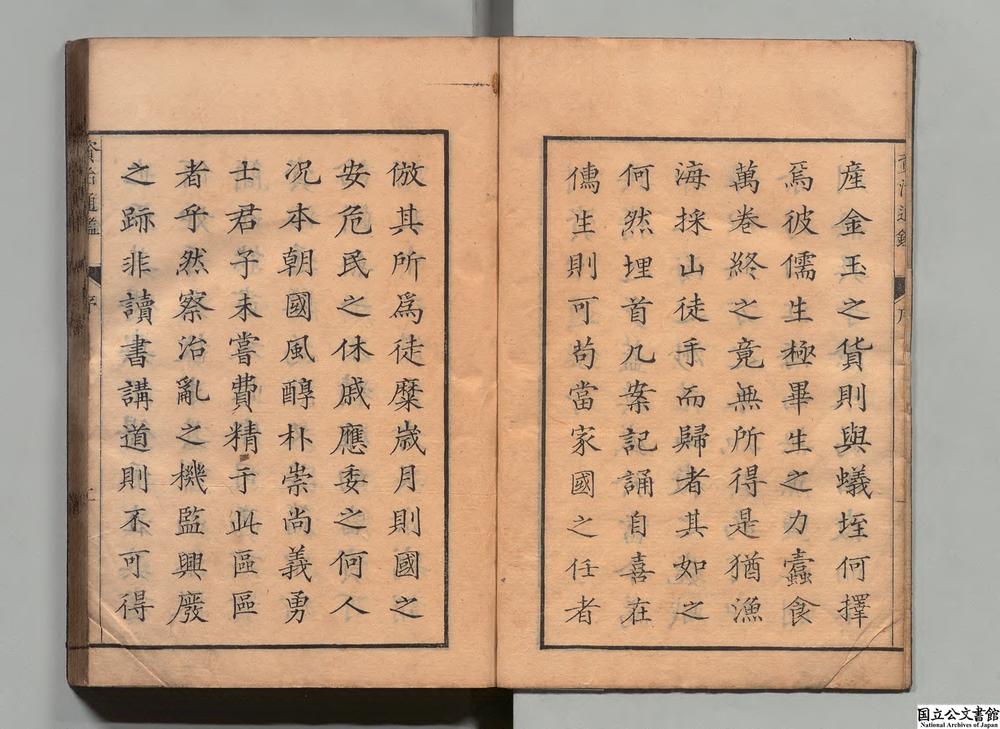 產金玉之貨則與蟻垤何擇
焉彼儒生極畢生之力蠹食
萬卷終之竟無所得是猶漁
海採山徒手而歸者其如之
何然埋首几案記誦自喜在
儒生則可苟當家國之任者
倣其所爲徒糜歲月則國之
安危民之休戚應委之何人
況本朝國風醇朴崇尚義勇
士君子未嘗費精于此區區
者乎然察治亂之機監興廢
之跡非讀書講道則不可得
資治通鑑
序
資治通鑑
序
国立公文書館
National Archives of Japan